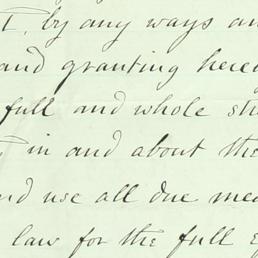 by any ways an
and granting here
full and whole st
in and about the
nd use all due mea
law for the full e